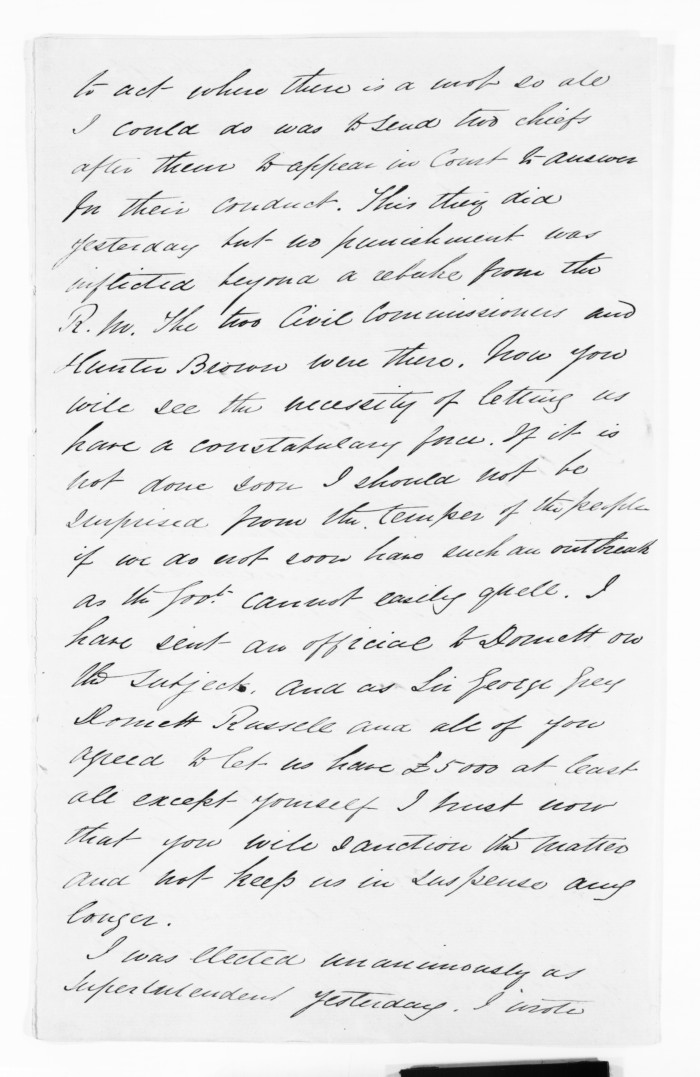 to act where there is a mob so all
I could do was to send two chiefs
after them to appear in Court to answer
for their conduct. This they did
yesterday but no punishment was
inflicted beyond a rebuke from the
R. M. The two Civil Commissioners and
Hunter Brown were there. Now you
will see the necessity of letting us
have a constabulary force. If it is
not done soon I should not be
surprised from the temper of the people
if we do not soon have such an outbreak
as the Govt. cannot easily quell. I
have sent an official to Domett on
the subject. and as Sir George Grey
Domett Russell and all of you
agreed to let us have £5000 at least
all except yourself I trust now
that you will sanction the matter
and not keep us in suspense any
longer.
I was elected unanimously as
Superintendent yesterday. I wrote